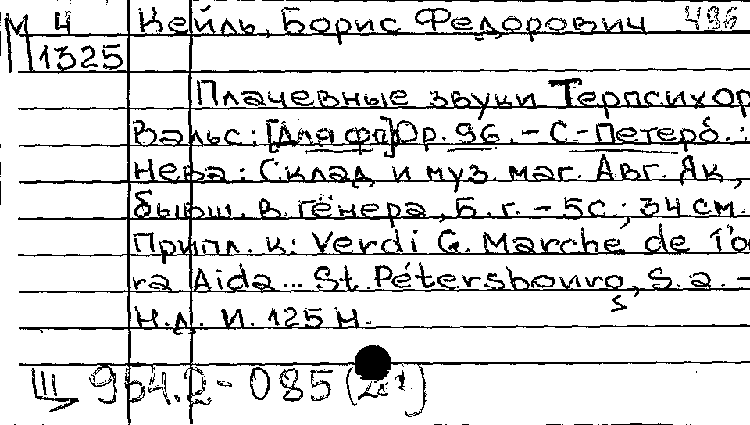 М 4 Кейль, Борис Федорович 496
1325
Плачевные звуки Терпсихор
Вальс: [Для фп] Op. 96. - С.-Петерб.:
Нева: Склад и муз. маг. Авг. Як,
бывш. в. Генера, Б. г. - 5с; 34 см.
Припл. к: Verdi G. Marche de l'o
ra Aida... St. Pétersbourg, S. a. -
Н.д. И. 125 Н.
Ш 954.2-085